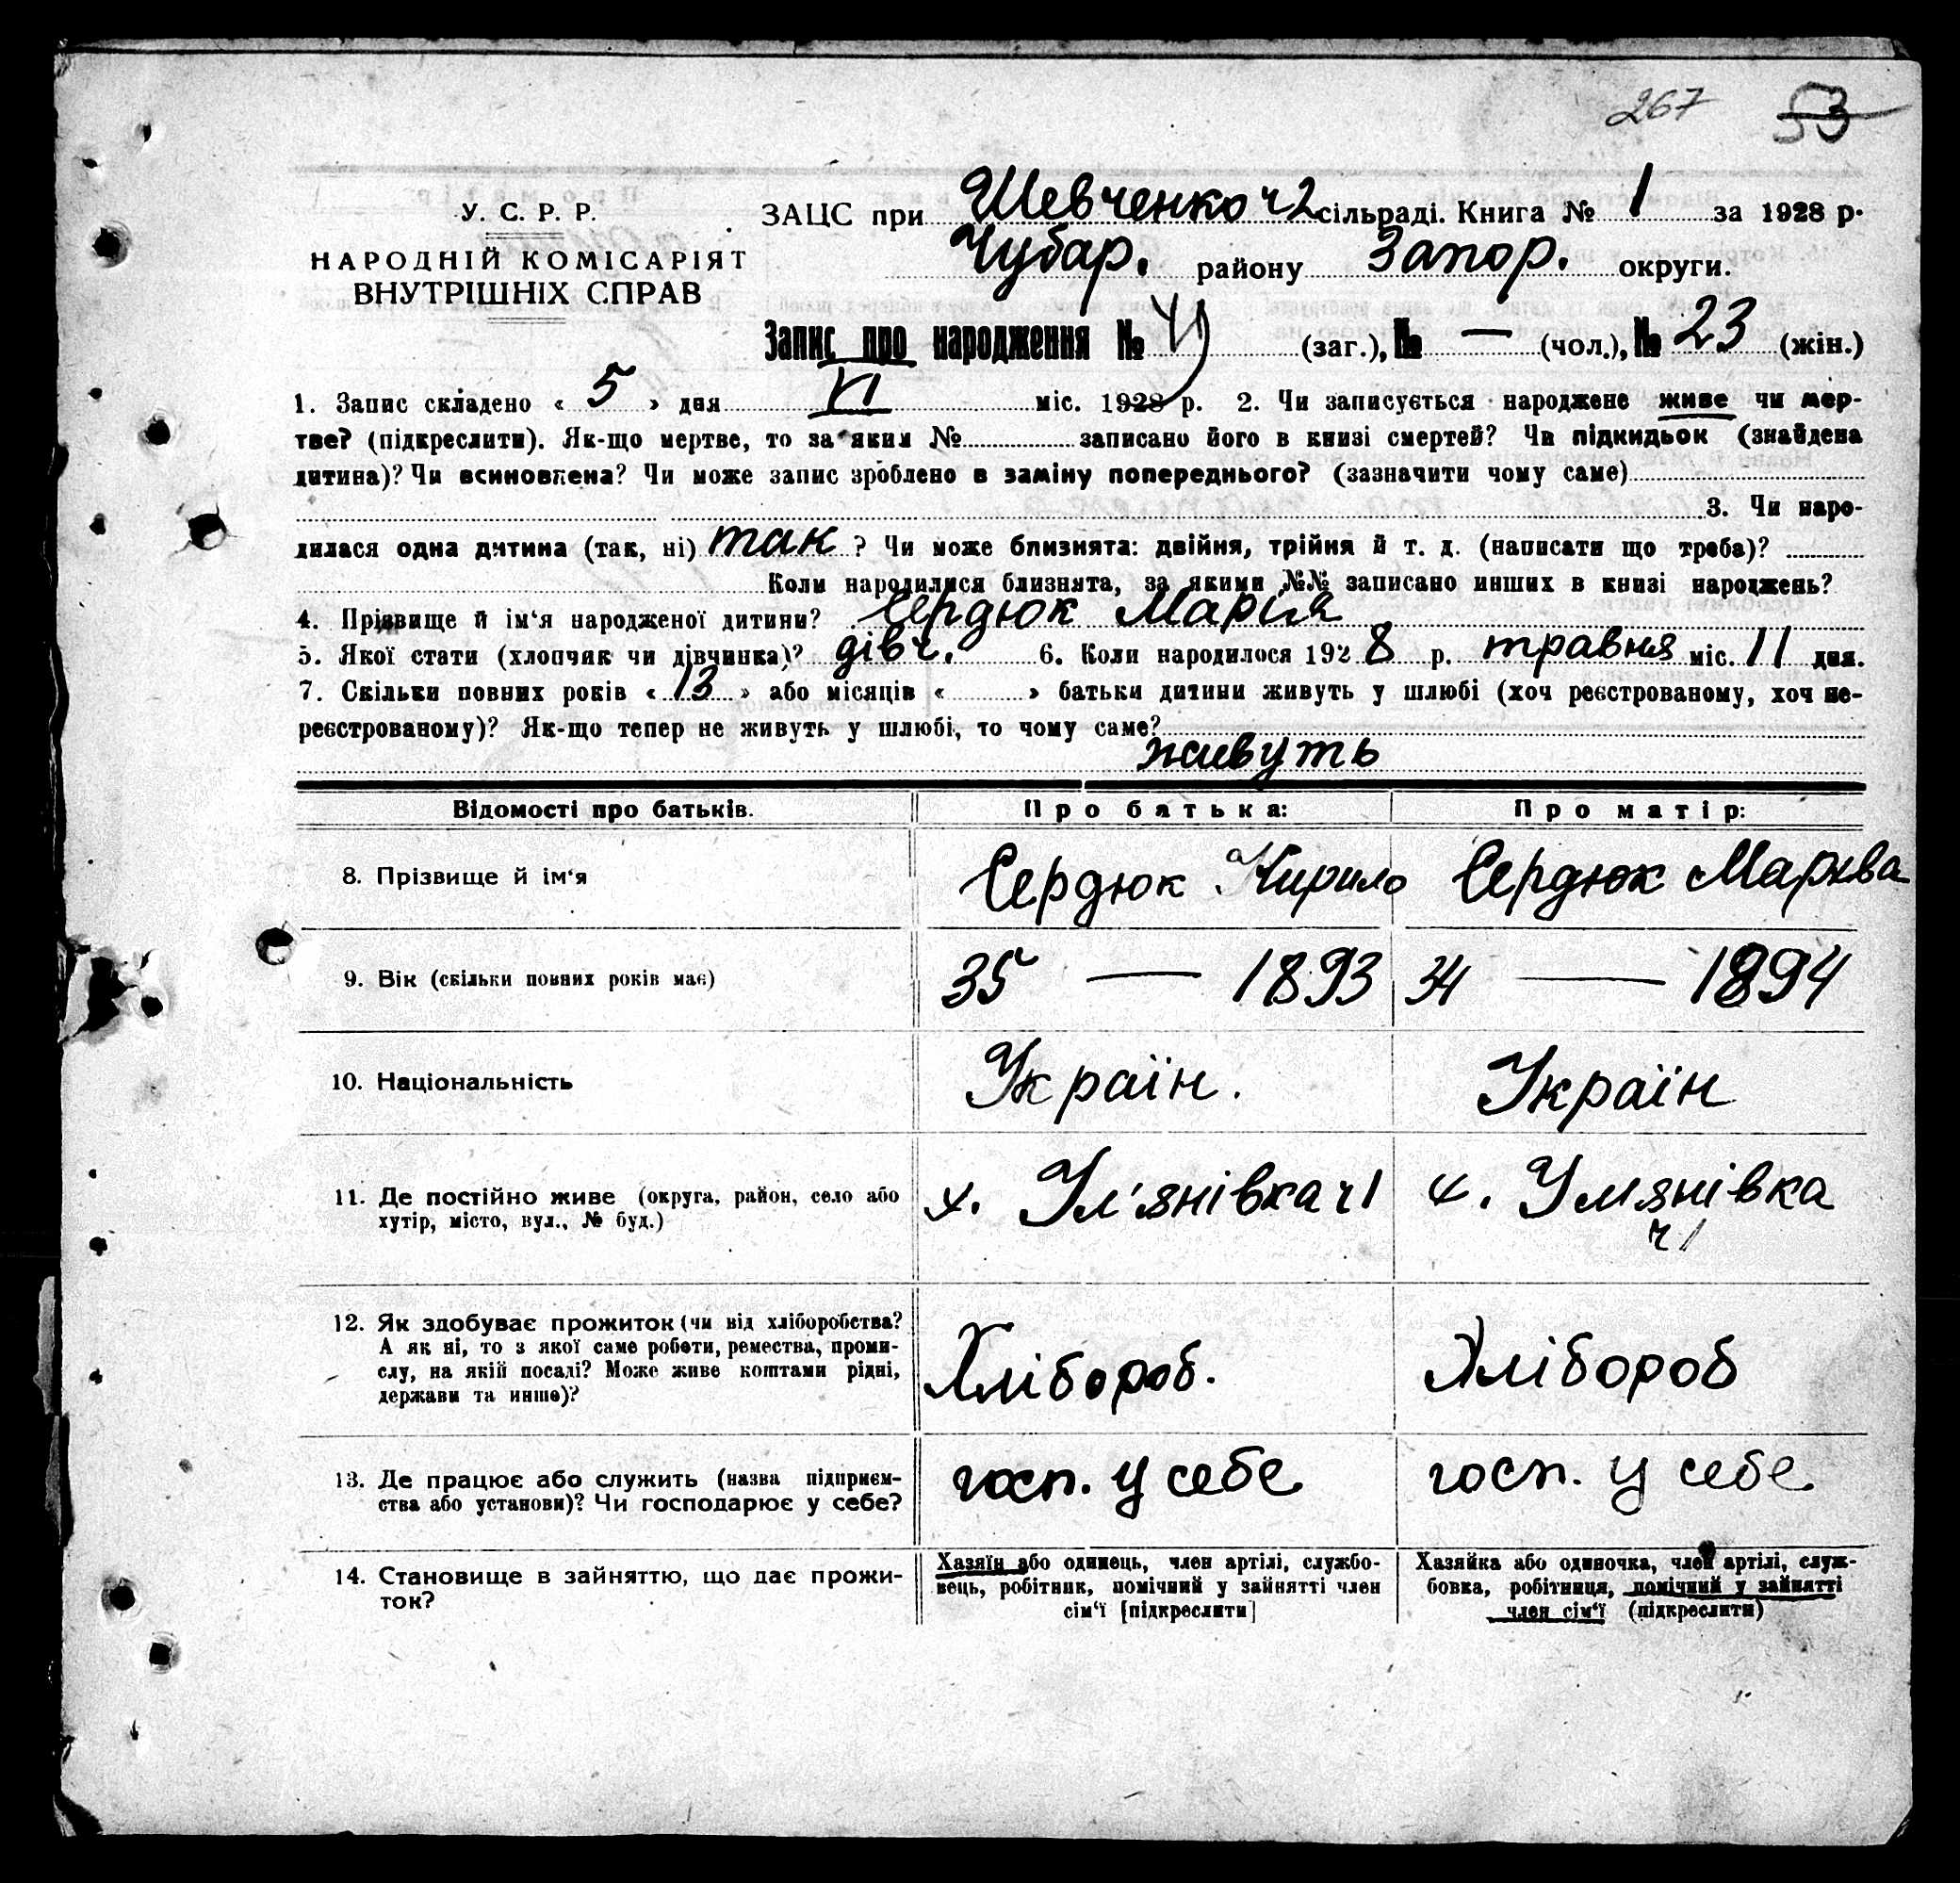 267 53
У. С. Р. Р.
НАРОДНІЙ КОМІСАРІЯТ
ВНУТРІШНІХ СПРАВ
ЗАЦС при Шевченко ч2 сільраді. Книга № 1 за 1928 р.
Чубар. району Запор. округи.
Запис про народження № (заг.), № — (чол.), № 23 (жін.)
1. Запис складено « 5 » дня VI міс. 1928 р. 2. Чи записується народжене живе чи мер-
тве? (підкреслити). Як-що мертве, то за яким № записано його в книзі смертей? Чи підкидьок (знайдена
дитина)? Чи всиновлена? Чи може запис зроблено в заміну попереднього? (зазначити чому саме)
3. Чи наро-
дилася одна дитина (так, ні) так ? Чи може близнята: двійня, трійня й т. д. (написати що треба)?
Коли народилися близнята, за якими №№ записано инших в книзі народжень?
4. Прізвище й ім‘я народженої дитини? Сердюк Марія
5. Якої стати (хлопчик чи дівчинка)? дівч. 6. Коли народилося 1928 р. травня міс. 11 дня.
7. Скільки повних років « 13 » або місяців « » батьки дитини живуть у шлюбі (хоч реєстрованому, хоч не-
реєстрованому)? Як-що тепер не живуть у шлюбі, то чому саме?
живуть
Відомості про батьків. Про батька: Про матір:
8. Прізвище й ім‘я Сердюк Кирило Сердюк
9. Вік (скільки повних років має) 35 — 1893 34 — 1894
10. Національність Україн. Україн
11. Де постійно живе (округа, район, село або
хутір, місто, вул., № буд.)
х. Ул'янівка ч1 х. Улянівка
ч1
12. Як здобуває прожиток (чи від хліборобства?
А як ні, то з якої саме роботи, ремества, проми-
слу, на якій посаді? Може живе коштами рідні,
держави та инше)?
Хлібороб. Хлібороб
13. Де працює або служить (назва підприєм-
ства або установи)? Чи господарює у себе?
госп. у себе госп. у себе
14. Становище в зайняттю, що дає прожи-
ток?
Хазяїн або одинець, член артілі, службо-
вець, робітник, помічний у зайнятті член
сім‘ї [підкреслити]
Хазяйка або одиночка, член артілі, служ-
бовка, робітниця, помічний у зайнятті
член сім‘ї (підкреслити)